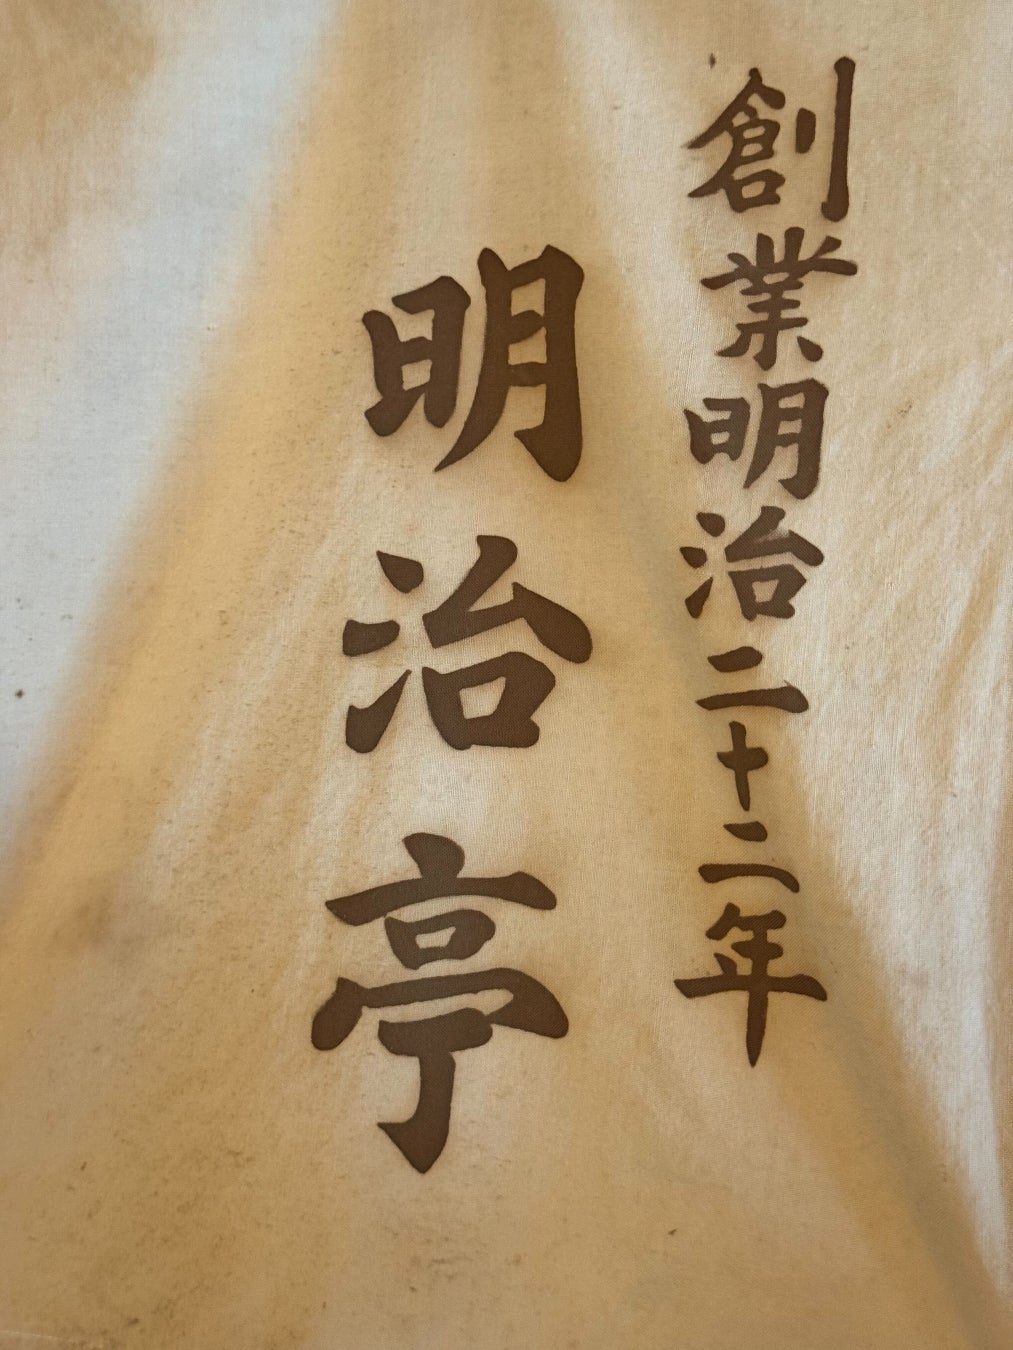 創業明治二十二年
明治亭